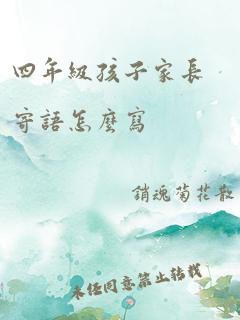 四年級孩子家長
寄語怎麼寫
銷魂菊花散
未经同意禁止转载